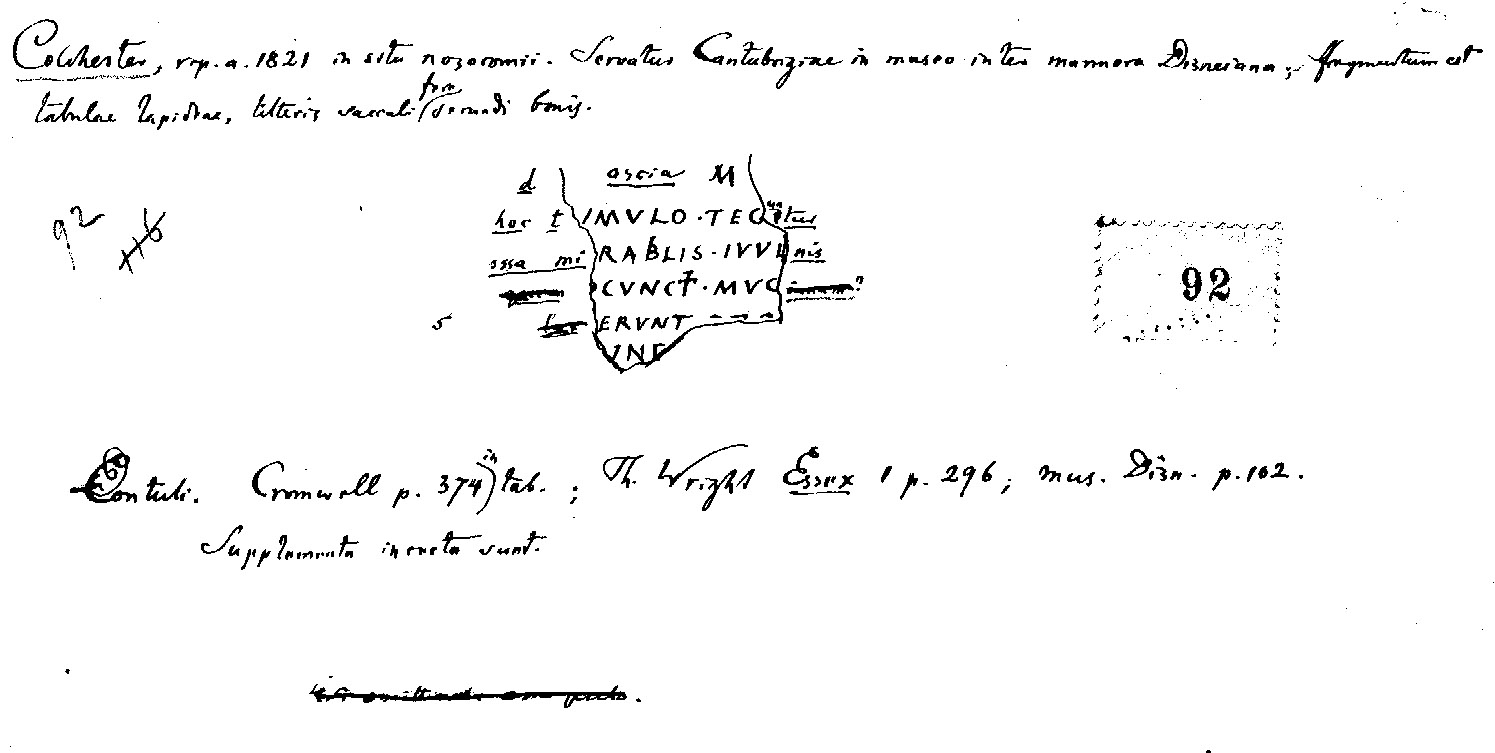 Colchester, rep. a. 1821 in situ nozocomii. Servatur Cantabrigiae in museo inter marmora Disneiana; fragmentum est
tabulae lapideae, litteris saeculi fere secundi bonis.
d ascia M
hoc t IMVLO · TEC tus
ossa mi RABLIS · IVVE nis
CVNCT · MVC ?
5 ERVNT
VNE
92
116
92
Contuli. Cromwell p. 374 in tab. ; Th. Wright Essex 1 p. 296; mus. Disn. p. 102.
Supplementa incerta sunt.